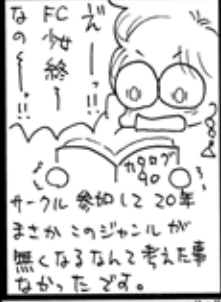 えーーっ!!
FC少女終了
なのーーっ!!
カタログ
90
サークル参加して20年
まさかこのジャンルが
無くなるなんて考えた事
なかったです。